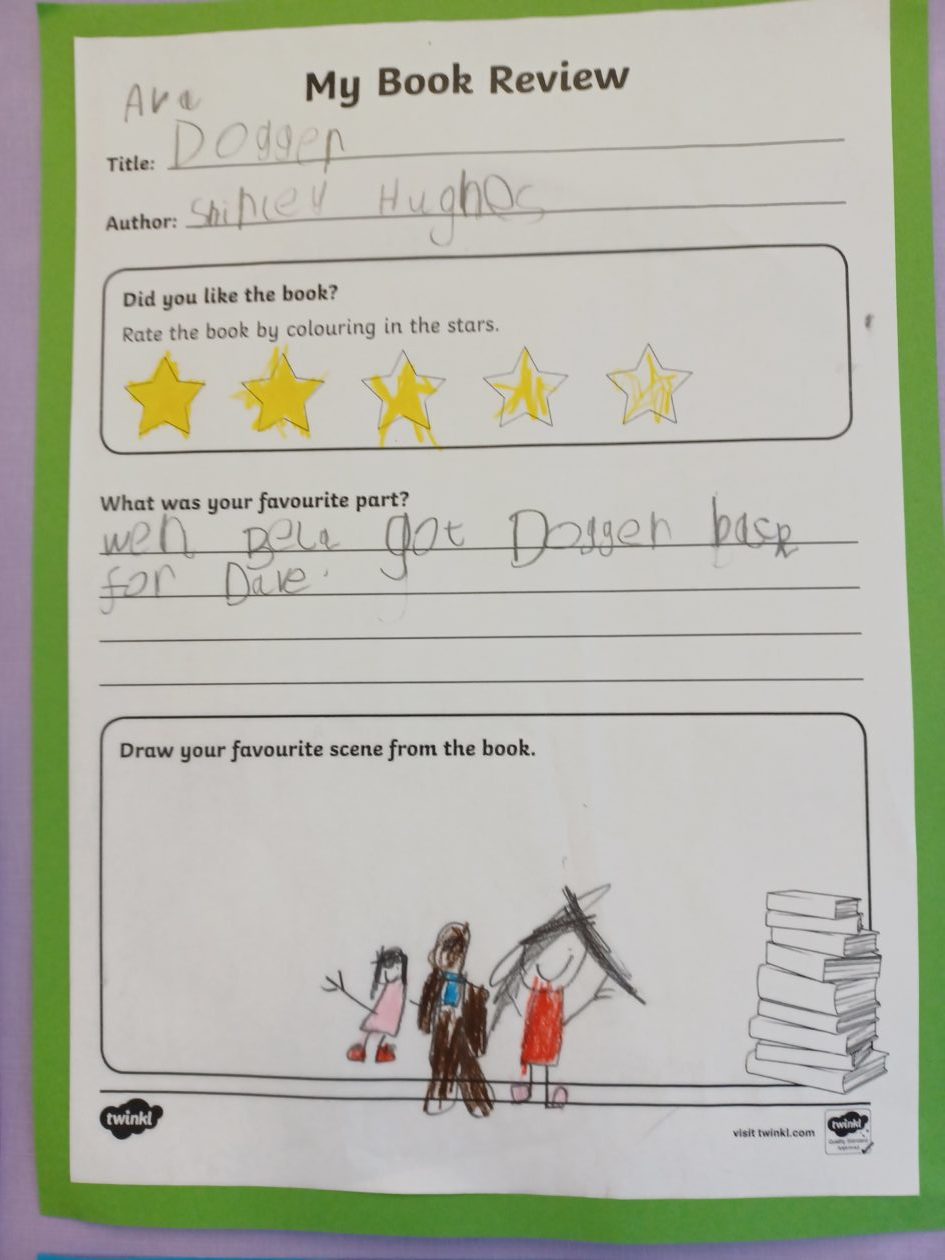 My Book Review
Ava
Title: Dogger
Author: Shirley Hughes
Did you like the book?
Rate the book by colouring in the stars.
What was your favourite part?
wen Bela got Dogger back
for Dave.
Draw your favourite scene from the book.
twinkl
visit twinkl.com
twinkl
Quality Standard
Approved